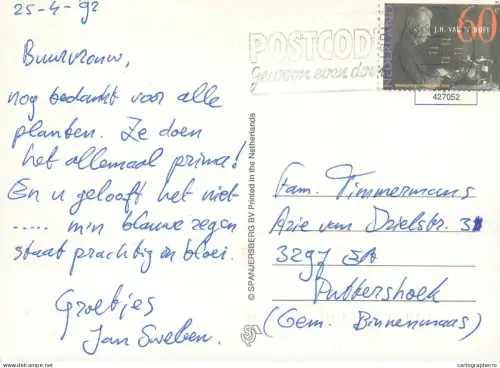 25-4-'92
Buurvrouw,
nog bedankt voor alle
planten. Ze doen
het allemaal prima!
En u gelooft het niet
..... m'n blauwe regen
staat prachtig in bloei.
Groetjes
Jan
© SPANJERSBERG BV Printed in the Netherlands
POSTCODE
gewoon even
NEDERLAND
J.H. VAN 'T HOFF
60c
427052
Fam. Timmermans
Arie van Drielstr. 3
3297
Puttershoek
(Gem. Binnenmaas)
delcampe.net
cartographerro